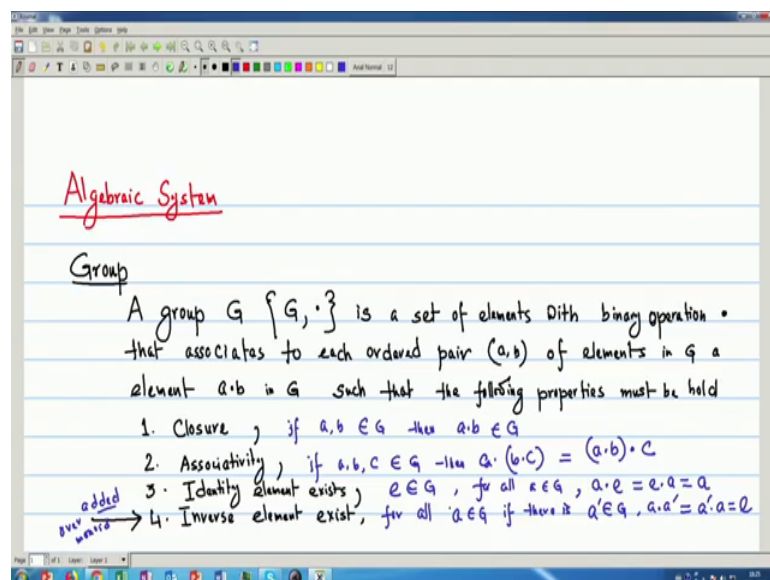 Journal
File Edit View Page Tools Options Help
Arial Normal 12
Algebraic System
Group
A group G {G, ·} is a set of elements with binary operation ·
that associates to each ordered pair (a,b) of elements in G a
element a·b in G such that the following properties must be hold
1. Closure, if a,b ∈ G then a·b ∈ G
2. Associativity, if a,b,c ∈ G then a·(b·c) = (a·b)·c
3. Identity element exists, e ∈ G, for all a ∈ G, a·e = e·a = a
added
over
4. Inverse element exist, for all a ∈ G if there is a' ∈ G, a·a' = a'·a = e
Page 1 of 1 Layer: Layer 1